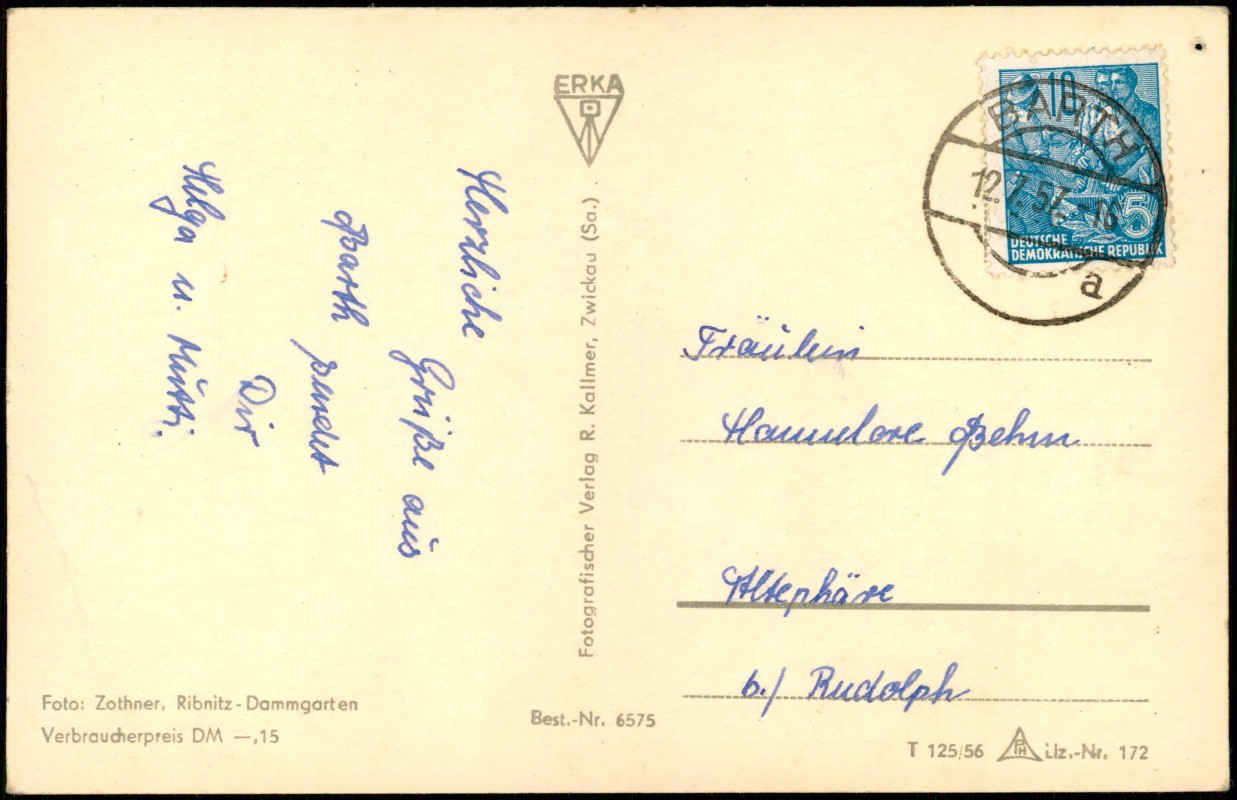 Herzliche
Grüße aus
Barth
sendet
Dir
Helga u. Mutti.
ERKA
Fotografischer Verlag R. Kallmer, Zwickau (Sa.)
10
5
DEUTSCHE
DEMOKRATISCHE REPUBLIK
BARTH
12.7.57.-16
a
Fräulein
Hannelore Behm
Altephäre
b./ Rudolph
Foto: Zothner, Ribnitz-Dammgarten
Verbraucherpreis DM —,15
Best.-Nr. 6575
T 125/56 PH Liz.-Nr. 172